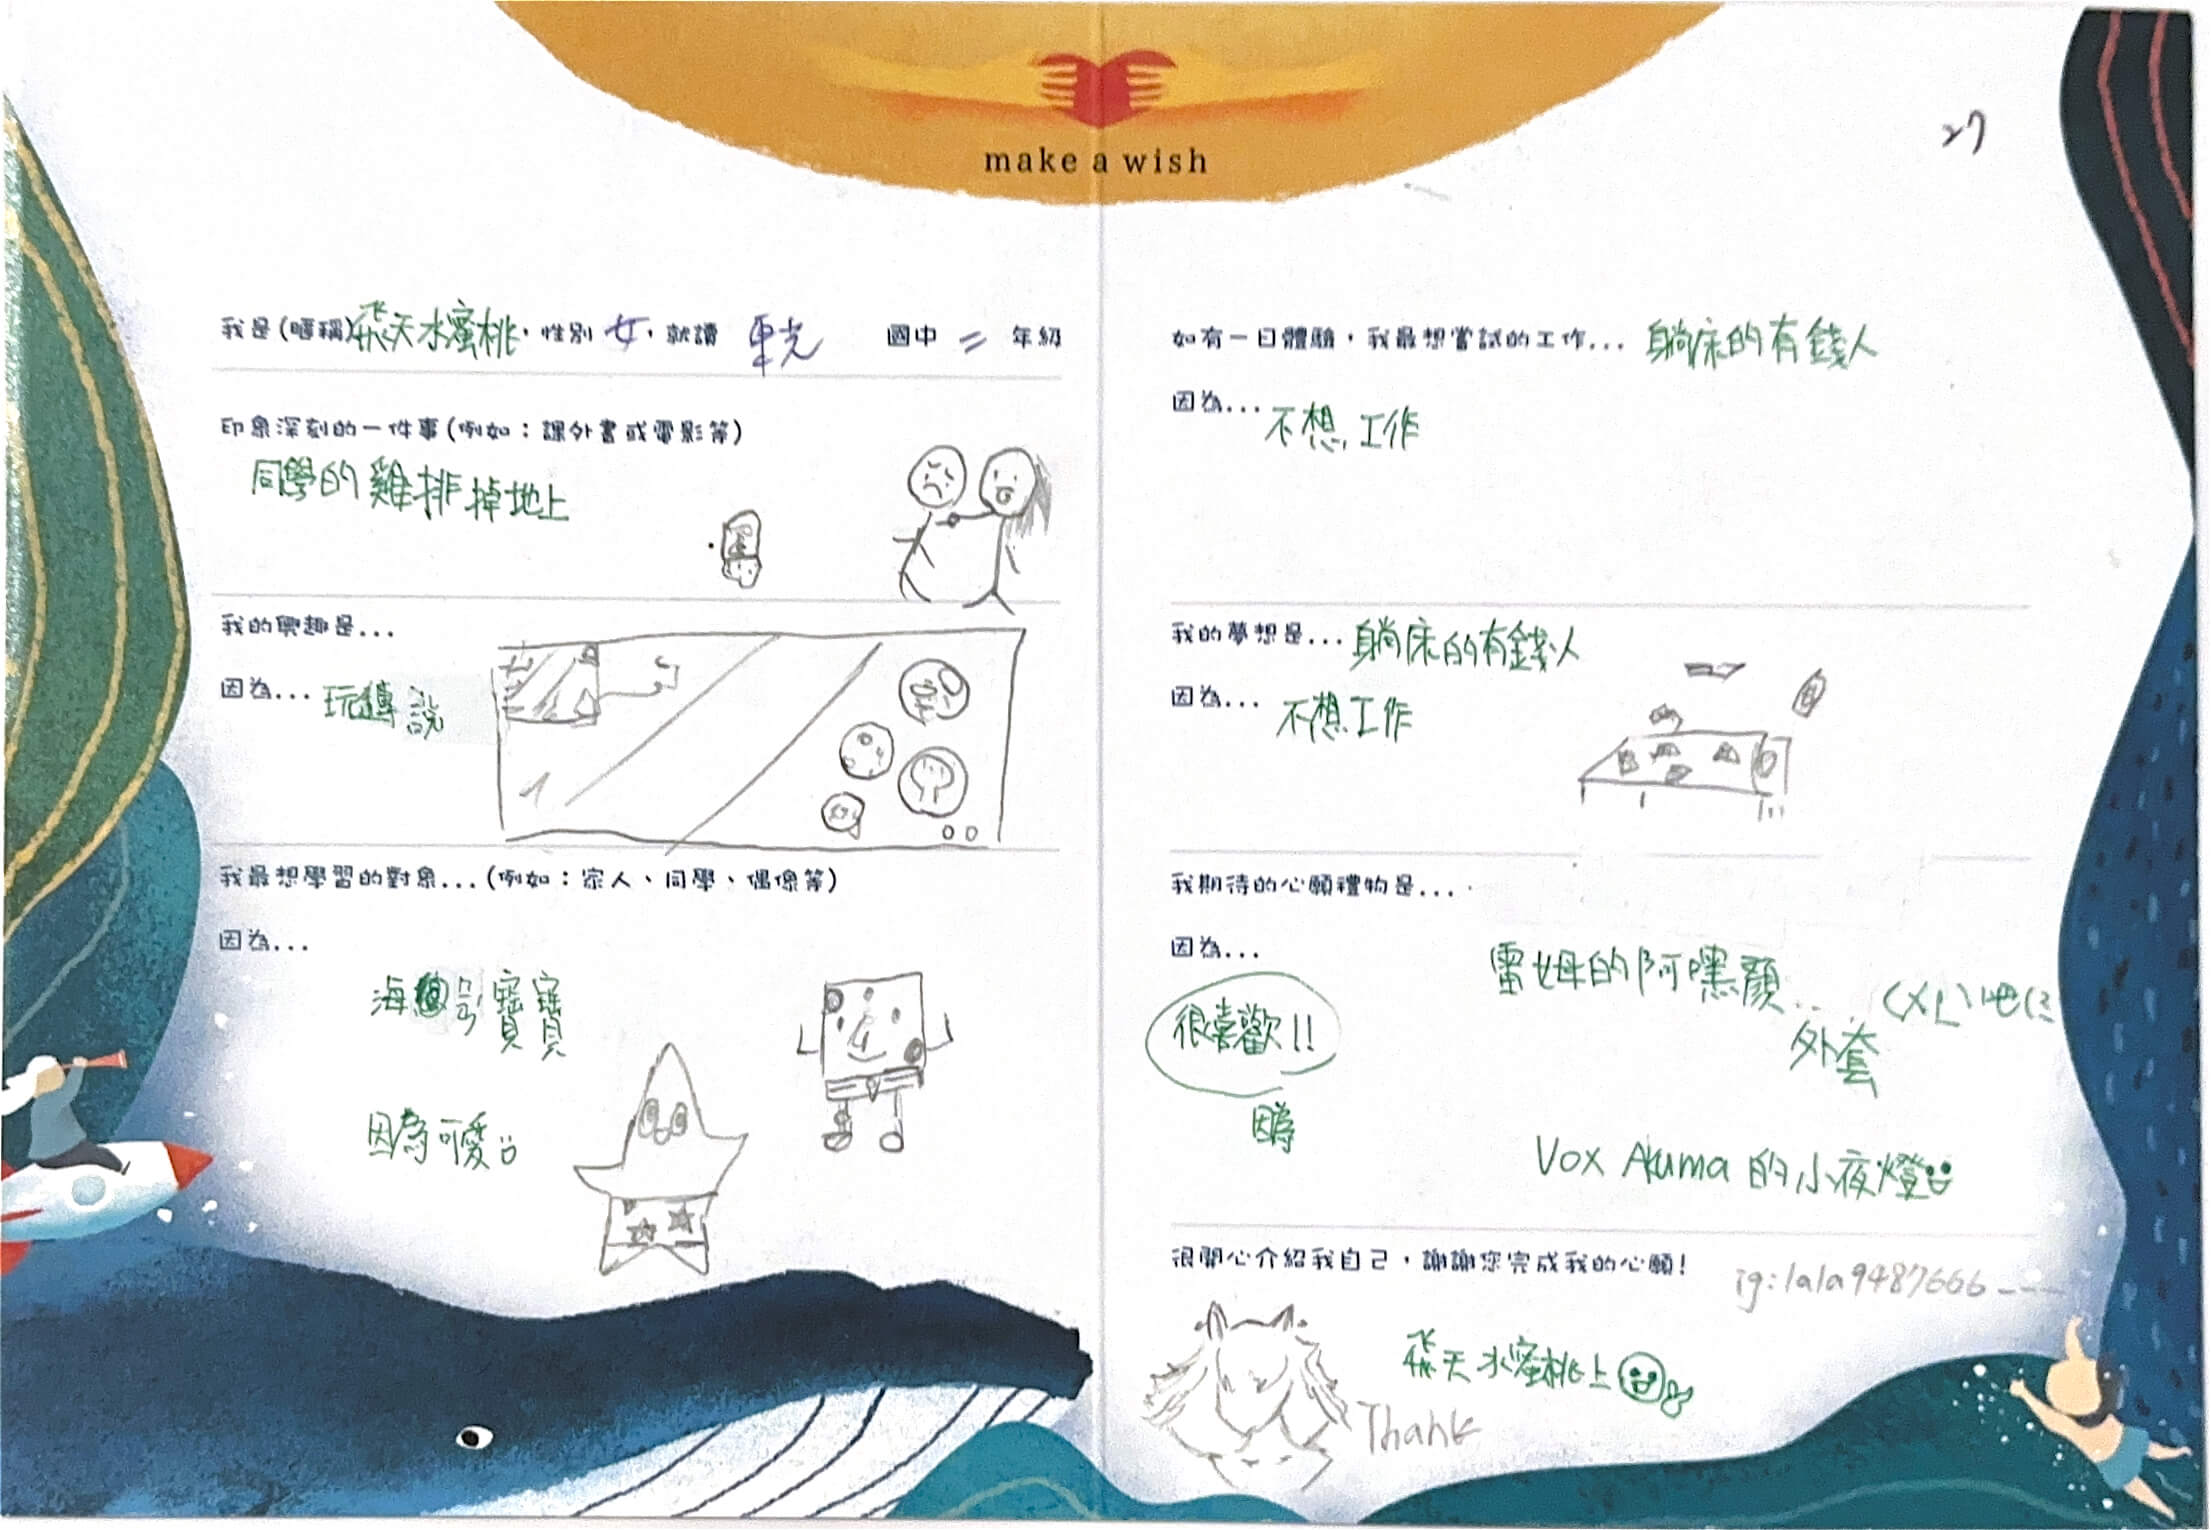 make a wish
27
我是(暱稱)飛天水蜜桃，性別 女，就讀 東光 國中 二 年級
印象深刻的一件事(例如：課外書或電影等)
同學的雞排掉地上
我的興趣是...
因為... 玩傳說
我最想學習的對象...(例如：家人、同學、偶像等)
因為...
海綿寶寶
因為可愛
如有一日體驗，我最想嘗試的工作... 躺床的有錢人
因為... 不想工作
我的夢想是... 躺床的有錢人
因為... 不想工作
我期待的心願禮物是...
因為...
很喜歡!!
因為
雷姆的阿嘿顏...
外套
Vox Akuma 的小夜燈
很開心介紹我自己，謝謝您完成我的心願!
ig:lala9487666____
飛天水蜜桃上
Thank